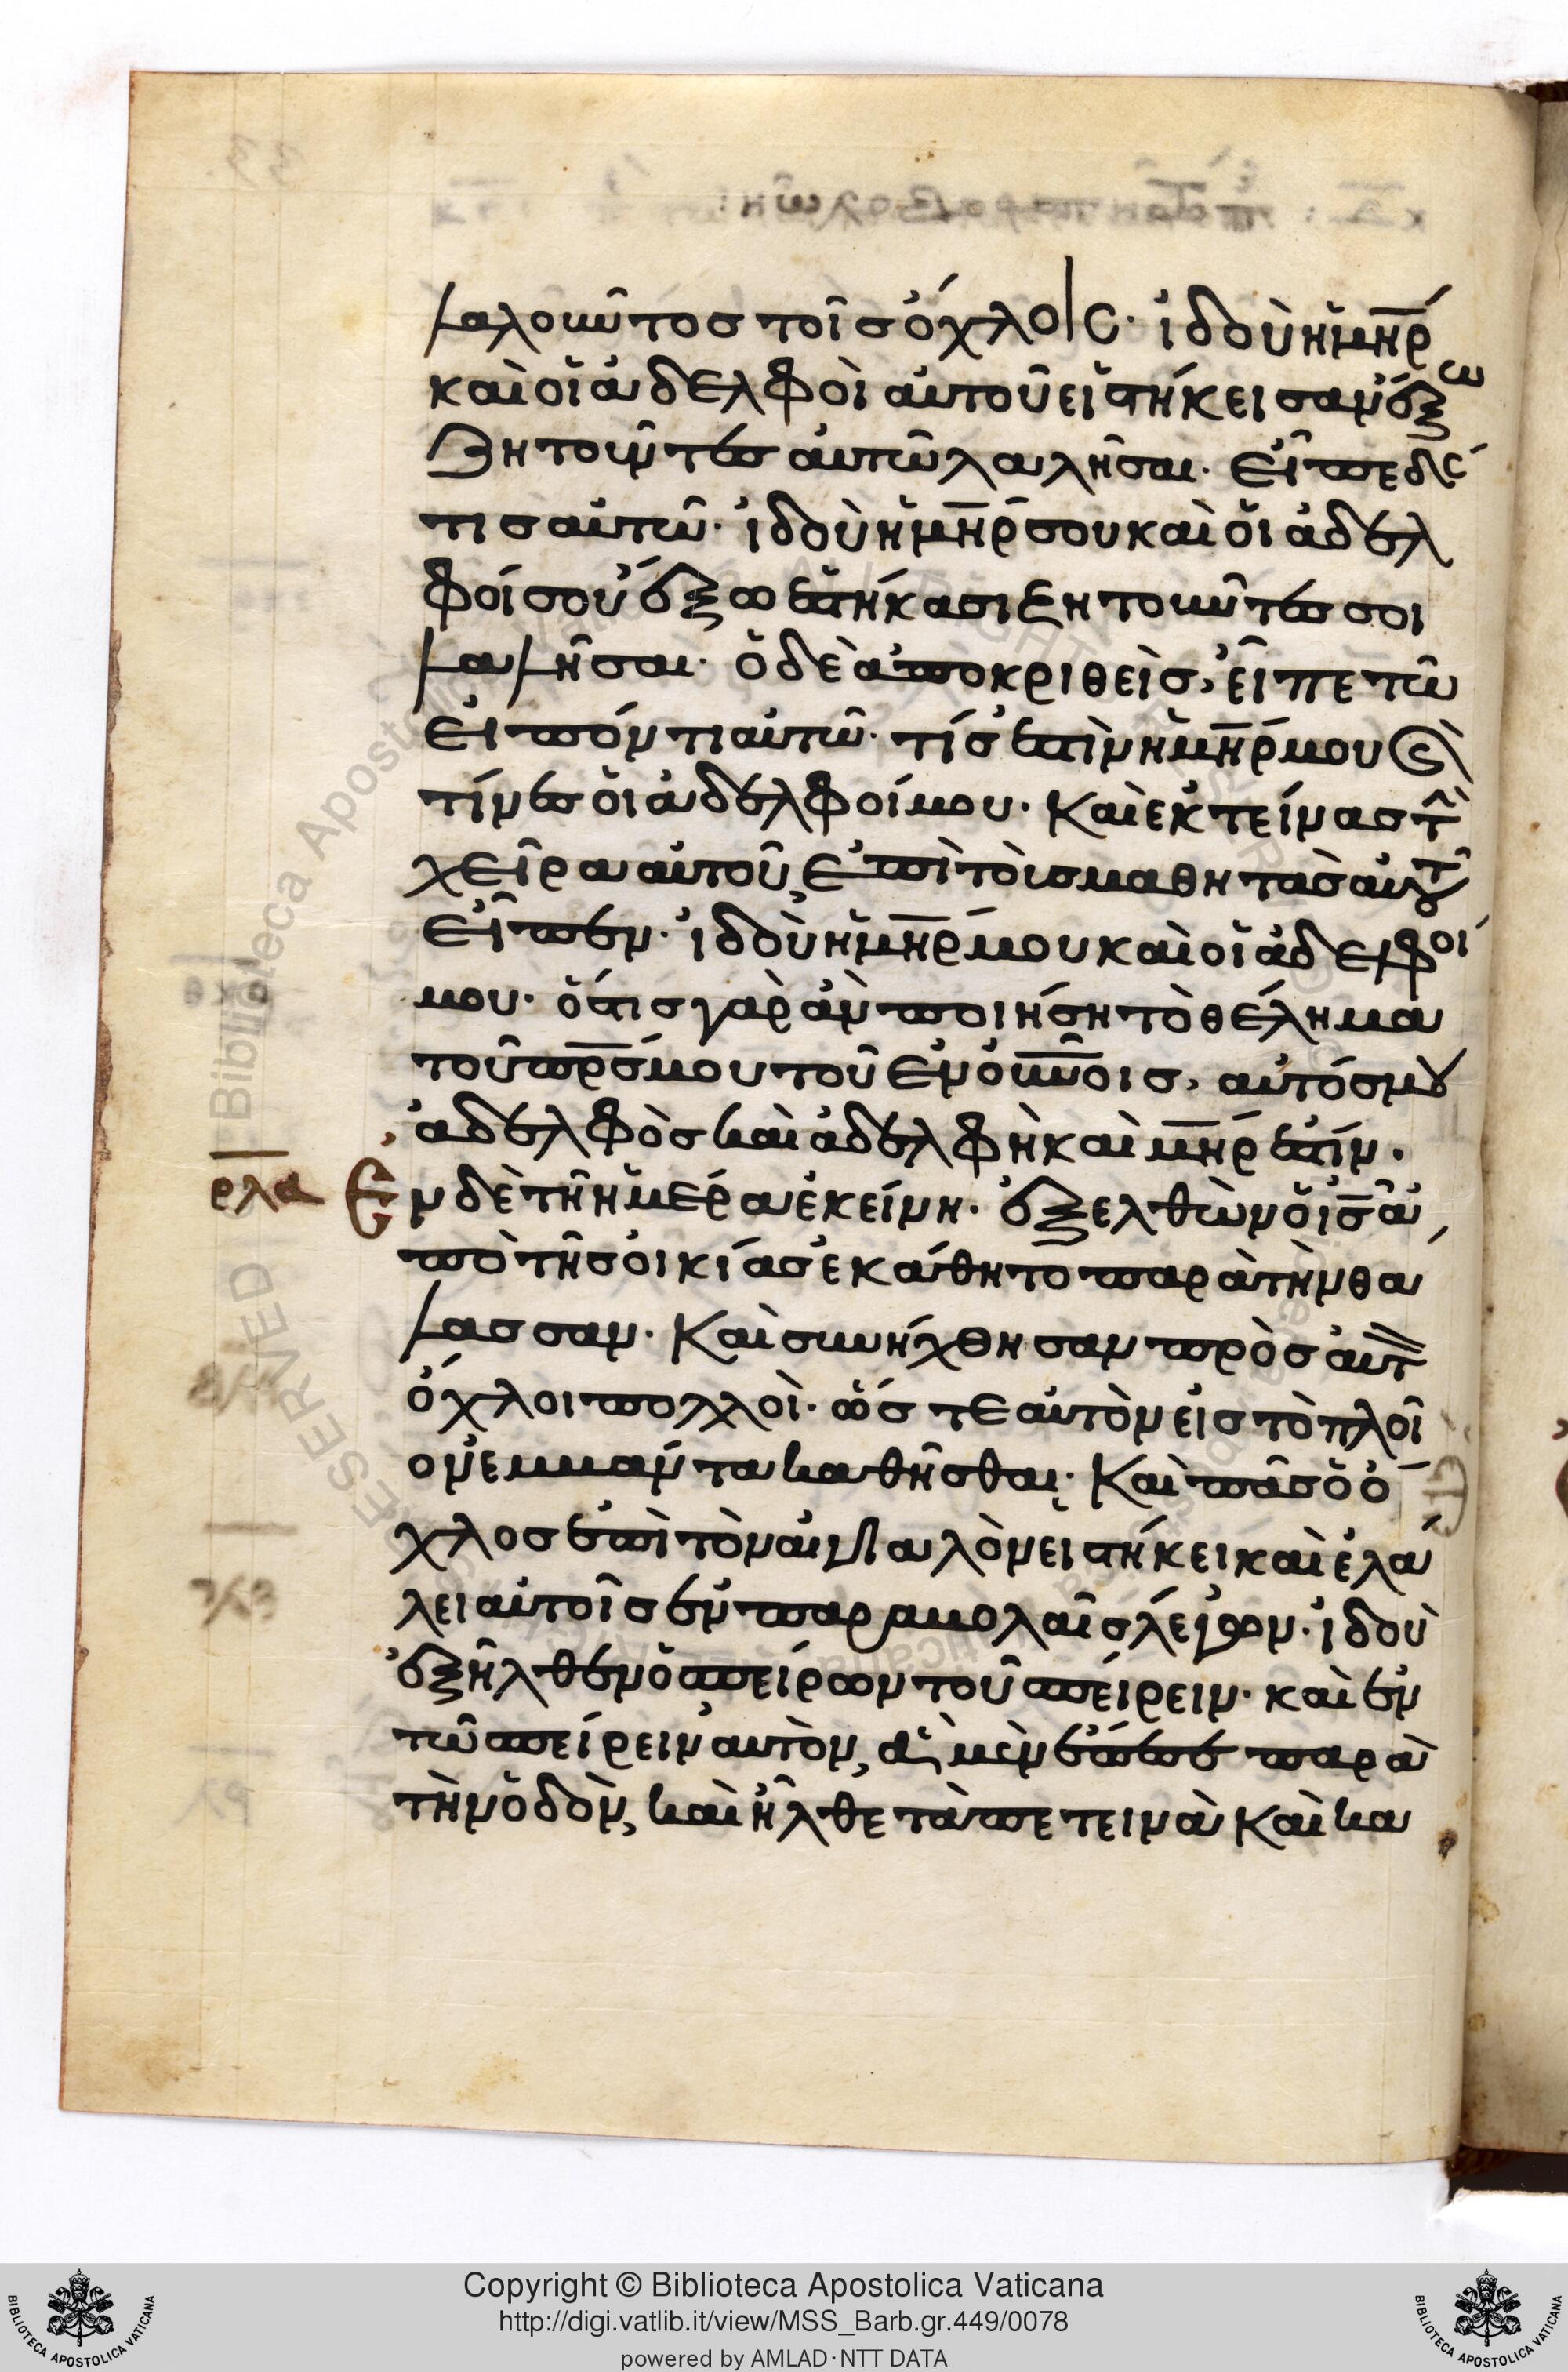 λαλοῦντος τοῖς ὄχλοις· ἰδοὺ ἡ μη̅ρ
καὶ οἱ ἀδελφοὶ αὐτοῦ εἱστήκεισαν ἔξω
ζητοῦντες αὐτῶ λαλῆσαι· εἶπε δέ
τις αὐτῶ· ἰδοὺ ἡ μη̅ρ σου καὶ οἱ ἀδελ
φοί σου ἔξω ἑστήκασι ζητοῦντες σοι
λαλῆσαι· ὁ δὲ ἀποκριθεὶς, εἶπε τῶ
εἰπόντι αὐτῶ· τίς ἐστὶν ἡ μη̅ρ μου ϗ
τίνες οἱ ἀδελφοί μου· Καὶ ἐκτείνας τ̑
χεῖρα αὐτοῦ, ἐπὶ τοὺς μαθητὰς αὐτοῦ
εἶπεν· ἰδοὺ ἡ μη̅ρ μου καὶ οἱ ἀδελφοί
μου· ὅστις γὰρ ἂν ποιήση τὸ θέλημα
τοῦ πρ̅σ μου τοῦ ἐν οὐν̅οις, αὐτός μου
ἀδελφὸς καὶ ἀδελφὴ καὶ μη̅ρ ἐστίν·
ρλα Ἐν δὲ τῆ ἡμέρα ἐκείνη· ἐξελθὼν ὁ ι̅σ ἀ
πὸ τῆς οἰκίας ἐκάθητο παρὰ τὴν θα
λασσαν· Καὶ συνήχθησαν πρὸς αὐτ
ὄχλοι πολλοὶ· ὥστε αὐτὸν εἰς τὸ πλοῖ
ον ἐμβάντα καθῆσθαι· Καὶ πᾶς ὁ ὄ
χλος ἐπὶ τὸν αἰγιαλὸν εἱστήκει καὶ ἐλά
λει αὐτοῖς ἐν παραβολαῖς λέγων· ἰδοὺ
ἐξῆλθεν ὁ σπείρων τοῦ σπείρειν· καὶ ἐν
τῶ σπείρειν αὐτὸν, ἃ μὲν ἔπεσε παρὰ
τὴν ὁδὸν, καὶ ἦλθε τὰ πετεινὰ καὶ κα
Copyright © Biblioteca Apostolica Vaticana
http://digi.vatlib.it/view/MSS_Barb.gr.449/0078
powered by AMLAD·NTT DATA